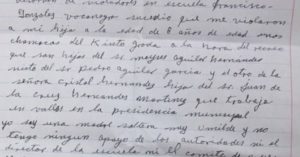 de violadores en escuela francisco
Gonzales vocanegra sucedio que me violaron
a mi hija a la edad de 8 años de edad unos
chamacos del Kinto grado a la hora del receso
que son hijos del sr moyses aguilar hernandes
nieto del sr pedro aguilar garcia y el otro de la
señora cristal hernandes hija del sr Juan de
la cruz hernandes martinez que trabaja
en valles en la presidencia municipal
yo soy una madre soltera muy umilde y no
tengo ningun apoyo de las autoridades ni el
director de la escuela ni el comite